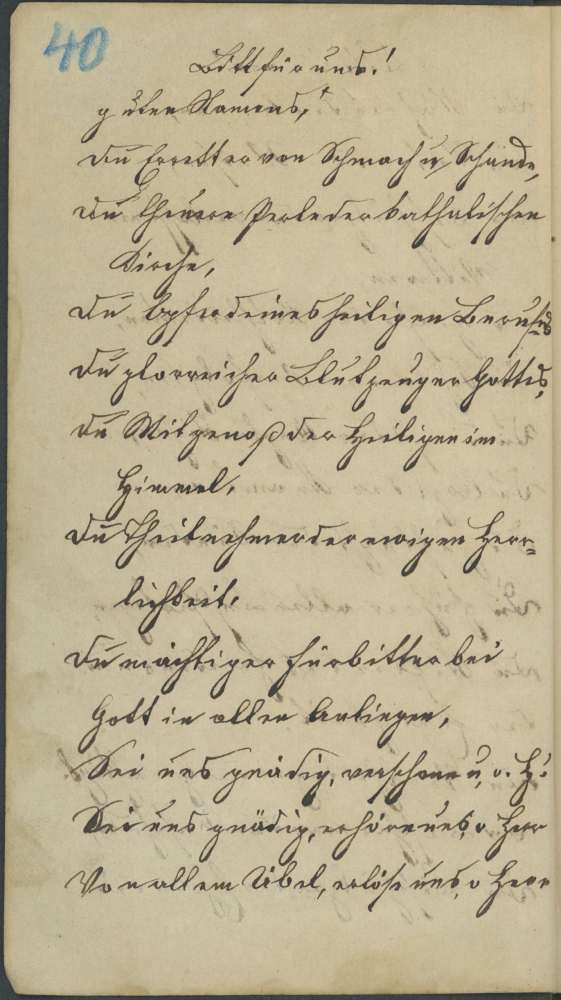 40
Bitt für uns!
guten Namens,
du Erretter von Schmach u, Schande,
du theuere Perle der kathalischen
Kirche,
du Opfer deines heiligen Berufes
du glorreicher Blutzeuger Gottes,
du Mitgenoß der Heiligen im
Himmel,
du Theilnehmer der ewigen Herr=
lichkeit,
du mächtiger Fürbitter bei
Gott in allen Anliegen,
Sei uns gnädig, verschone u, o. H!
Sei uns gnädig, erhöre uns, o Herr
Von allem Übel, erlöse uns, o Herr